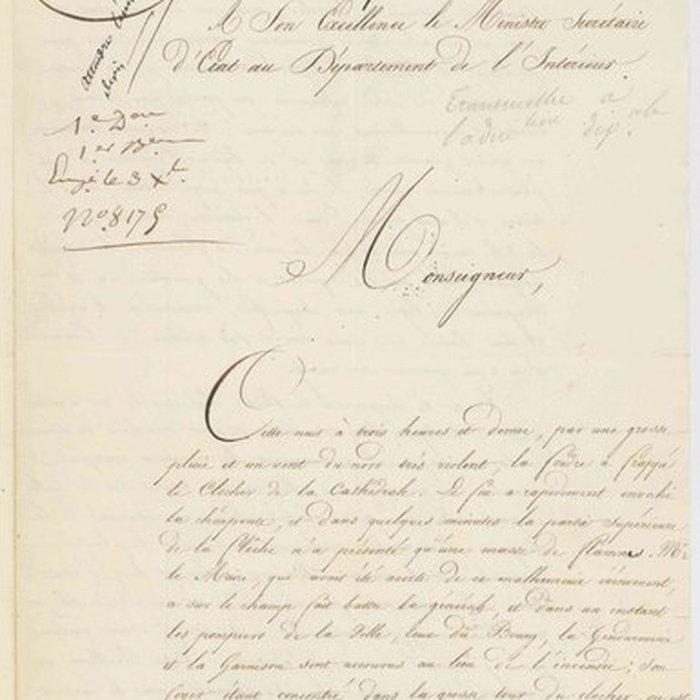 A Son Excellence le Ministre Secrétaire
d'Etat au Département de l'Intérieur.
Transmettre à
1e Don
1er Beau
Enregé le 3 Xbre
No 8175
Monseigneur,
Cette nuit à trois heures et demie, par une grosse
pluie et un vent du nord très violent, la foudre a frappé
le Clocher de la Cathédrale. Le feu a rapidement envahi
la charpente, et dans quelques minutes la partie supérieure
de la flèche n'a présenté qu'une masse de flammes. Mr
le Maire, qui avait été averti de ce malheureux évènement,
a sur le champ fait battre la générale, et dans un instant
les pompiers de la Ville, ceux du Bourg, la Gendarmerie
et la Garnison sont accourus au lieu de l'incendie; son
foyer étant concentré dans la grosse tour du clocher